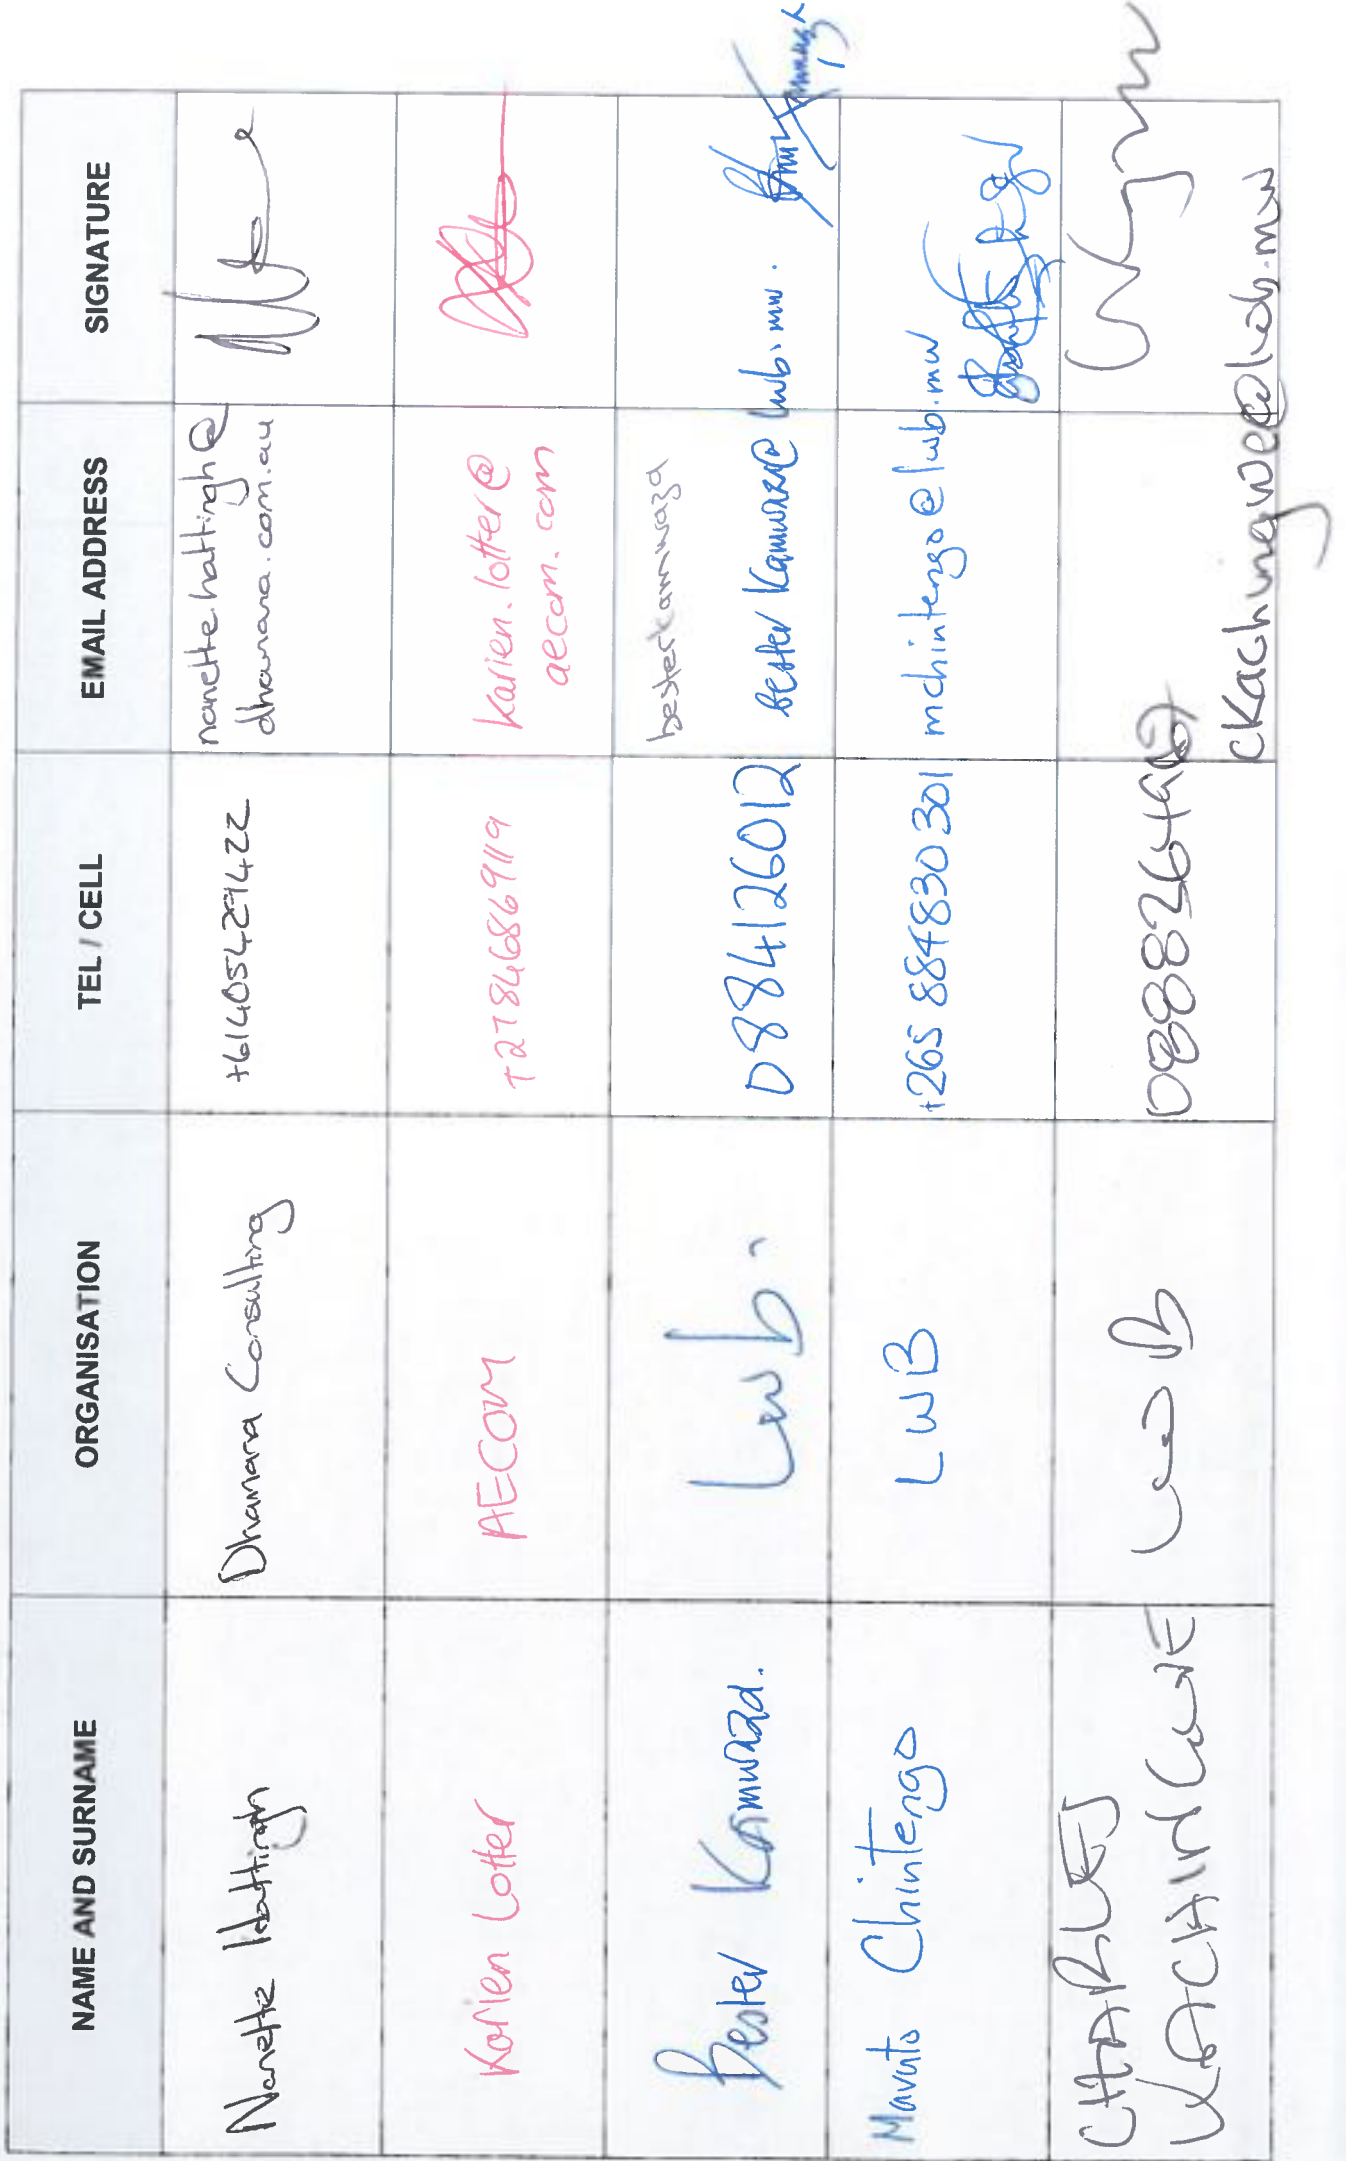 NAME AND SURNAME ORGANISATION TEL / CELL EMAIL ADDRESS SIGNATURE
Nanette Hattingh Dhamana Consulting +61405429422 nanette.hattingh@
dhamana.com.au
Karien Lotter AECOM +27846869119 karien.lotter@
aecom.com
besterkamwaza
Bester Kamwaza. Lwb. 0884126012 besterkamwaza@lwb.mw.
Mavuto Chintengo LWB +265 884830301 mchintengo@lwb.mw
CHARLES
KACHINGWE LWB
ckachingwe@lwb.mw